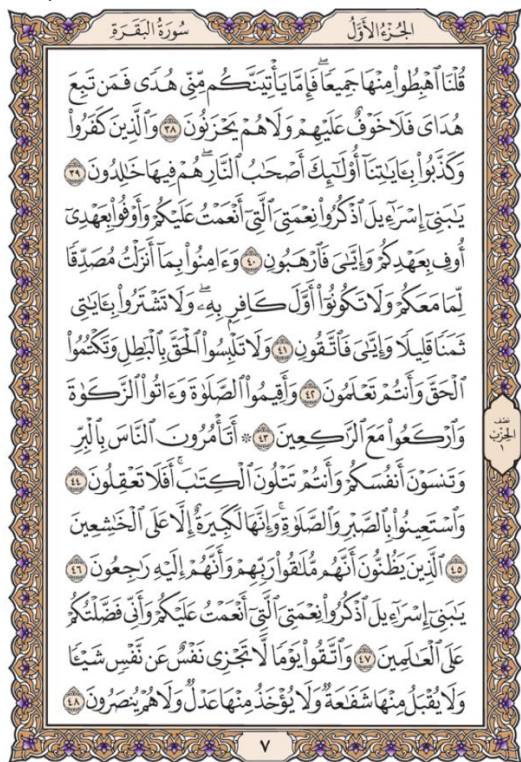 الجُزْءُ الأَوَّلُ
سُورَةُ البَقَرَةِ
قُلۡنَا ٱهۡبِطُواْ مِنۡهَا جَمِيعٗاۖ فَإِمَّا يَأۡتِيَنَّكُم مِّنِّي هُدٗى فَمَن تَبِعَ
هُدَايَ فَلَا خَوۡفٌ عَلَيۡهِمۡ وَلَا هُمۡ يَحۡزَنُونَ ٣٨ وَٱلَّذِينَ كَفَرُواْ
وَكَذَّبُواْ بِـَٔايَٰتِنَآ أُوْلَٰٓئِكَ أَصۡحَٰبُ ٱلنَّارِۖ هُمۡ فِيهَا خَٰلِدُونَ ٣٩
يَٰبَنِيٓ إِسۡرَٰٓءِيلَ ٱذۡكُرُواْ نِعۡمَتِيَ ٱلَّتِيٓ أَنۡعَمۡتُ عَلَيۡكُمۡ وَأَوۡفُواْ بِعَهۡدِيٓ
أُوفِ بِعَهۡدِكُمۡ وَإِيَّٰيَ فَٱرۡهَبُونِ ٤٠ وَءَامِنُواْ بِمَآ أَنزَلۡتُ مُصَدِّقٗا
لِّمَا مَعَكُمۡ وَلَا تَكُونُوٓاْ أَوَّلَ كَافِرِۭ بِهِۦۖ وَلَا تَشۡتَرُواْ بِـَٔايَٰتِي
ثَمَنٗا قَلِيلٗا وَإِيَّٰيَ فَٱتَّقُونِ ٤١ وَلَا تَلۡبِسُواْ ٱلۡحَقَّ بِٱلۡبَٰطِلِ وَتَكۡتُمُواْ
ٱلۡحَقَّ وَأَنتُمۡ تَعۡلَمُونَ ٤٢ وَأَقِيمُواْ ٱلصَّلَوٰةَ وَءَاتُواْ ٱلزَّكَوٰةَ
وَٱرۡكَعُواْ مَعَ ٱلرَّٰكِعِينَ ٤٣ ۞ أَتَأۡمُرُونَ ٱلنَّاسَ بِٱلۡبِرِّ
وَتَنسَوۡنَ أَنفُسَكُمۡ وَأَنتُمۡ تَتۡلُونَ ٱلۡكِتَٰبَۚ أَفَلَا تَعۡقِلُونَ ٤٤
وَٱسۡتَعِينُواْ بِٱلصَّبۡرِ وَٱلصَّلَوٰةِۚ وَإِنَّهَا لَكَبِيرَةٌ إِلَّا عَلَى ٱلۡخَٰشِعِينَ
٤٥ ٱلَّذِينَ يَظُنُّونَ أَنَّهُم مُّلَٰقُواْ رَبِّهِمۡ وَأَنَّهُمۡ إِلَيۡهِ رَٰجِعُونَ ٤٦
يَٰبَنِيٓ إِسۡرَٰٓءِيلَ ٱذۡكُرُواْ نِعۡمَتِيَ ٱلَّتِيٓ أَنۡعَمۡتُ عَلَيۡكُمۡ وَأَنِّي فَضَّلۡتُكُمۡ
عَلَى ٱلۡعَٰلَمِينَ ٤٧ وَٱتَّقُواْ يَوۡمٗا لَّا تَجۡزِي نَفۡسٌ عَن نَّفۡسٖ شَيۡـٔٗا
وَلَا يُقۡبَلُ مِنۡهَا شَفَٰعَةٞ وَلَا يُؤۡخَذُ مِنۡهَا عَدۡلٞ وَلَا هُمۡ يُنصَرُونَ ٤٨
نِصْف
الحِزْب
١
٧